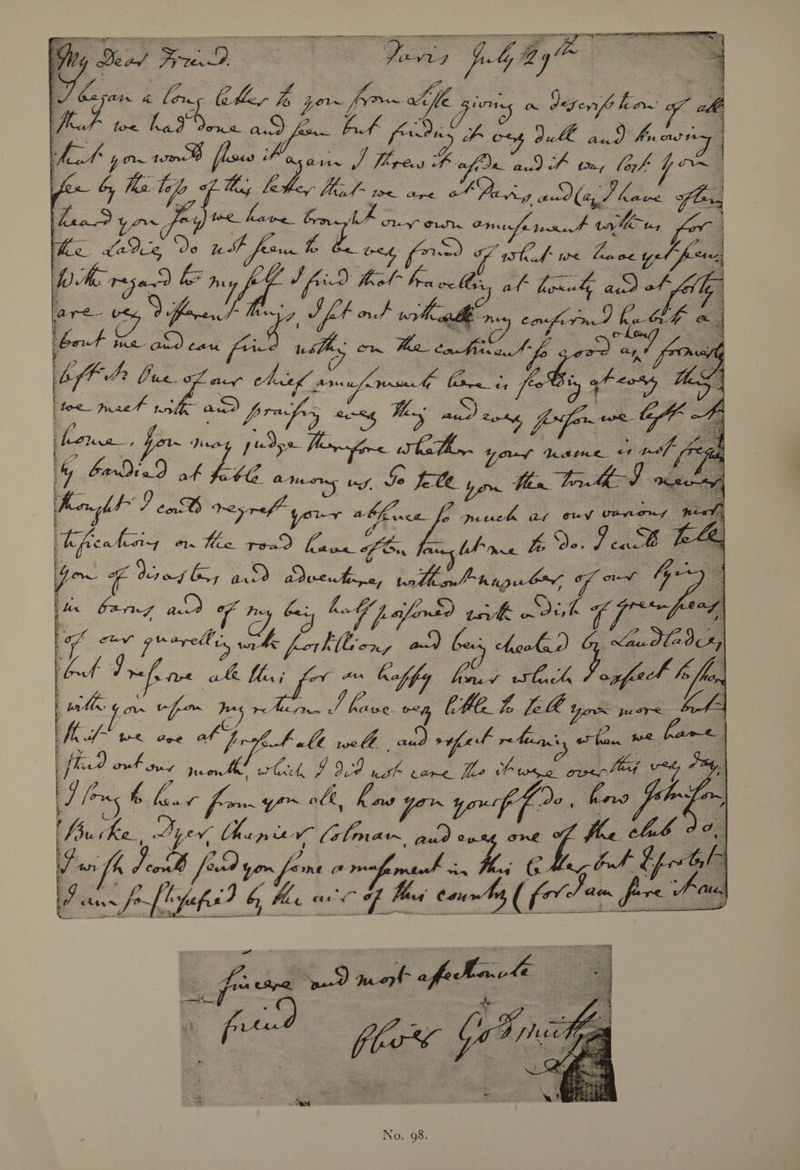 My Dear Friend. Paris July 29th
I began a long letter to you from Lisle giving a description of all
that we had done and seen but finding it very dull and knowing
that you would show it again I threw it aside and it was lost. You
see by the top of this letter that we are at Paris, and (as I have often
heard you say) we have brought our own amusement with us for
the Ladies do not seem to be very fond of what we have yet seen
With regard to my self I find that travelling at twenty and at forty
are very different things, I set out with all my confirmd habits a
bout me and can find nothing on the continent so good as when I formerly
left it. One of our chief amusements here is scolding at every thing
we meet with and praising every thing and every person we left at
home. You may judge therefore whether your name is not frequently
bandied at table among us. To tell you the truth I never
thought I could regret your absence so much as our various mort
ifications on the road have often taught me to do. I could tell
you of disasters and adventures without number, of our lying
in barns, and of my being half poisoned with a dish of green peas,
of our quarelling with postillions, and being cheated by Landladies,
but I reserve all this for an happy hour which I expect to share
with you upon my return. I have very little to tell you more but
that we are at present all well and expect returning when we have
staid out our month, which I did not care tho it were over this very day,
I long to hear from you all, how you yourself do, how Johnson,
Burke, Dyer, Chamier Colman, and every one of the club do.
I wish I could send you some amusement in this letter but I protest
I am so stupefied by the air of this country (for I am sure
sincere and most affectionate
friend
Oliver Goldsmith
No. 98.